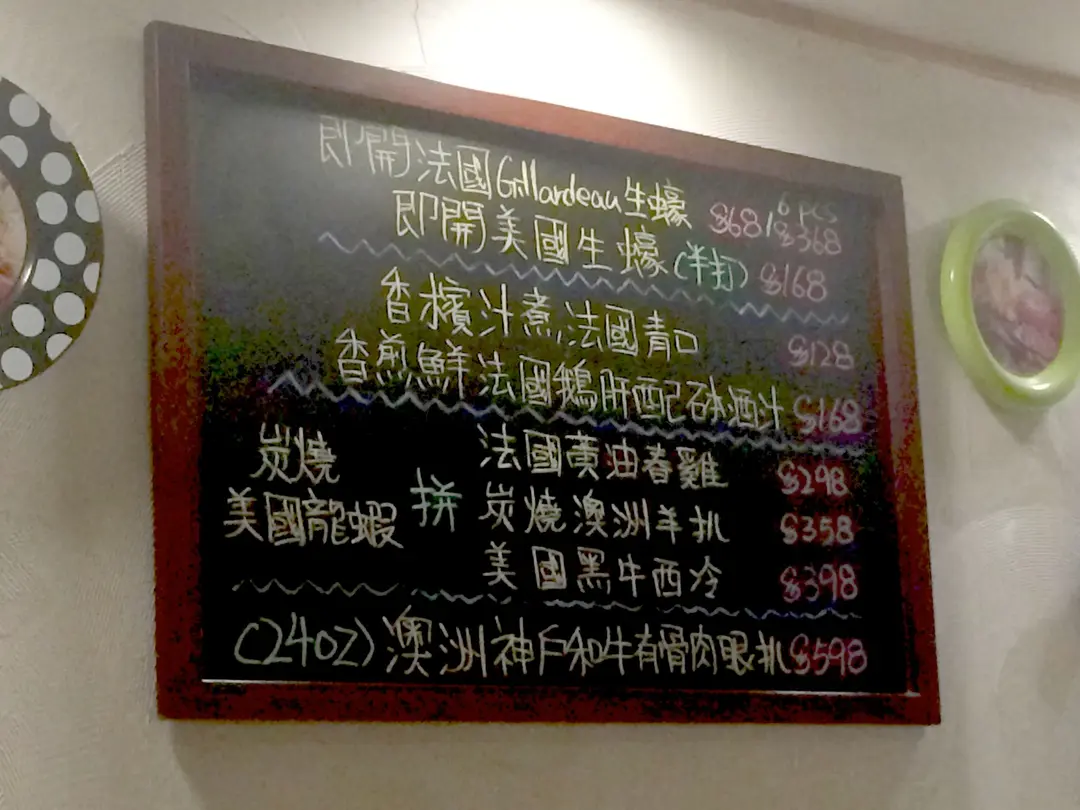 即開法國Gillardeau生蠔 $68/$368 6 pcs
即開美國生蠔(半打) $168
香檳汁煮法國青口 $128
香煎鮮法國鵝肝配砵酒汁 $168
炭燒
美國龍蝦 拼
法國黃油春雞 $298
炭燒澳洲羊扒 $358
美國黑牛西冷 $398
(24OZ)澳洲神戶和牛有骨肉眼扒 $598